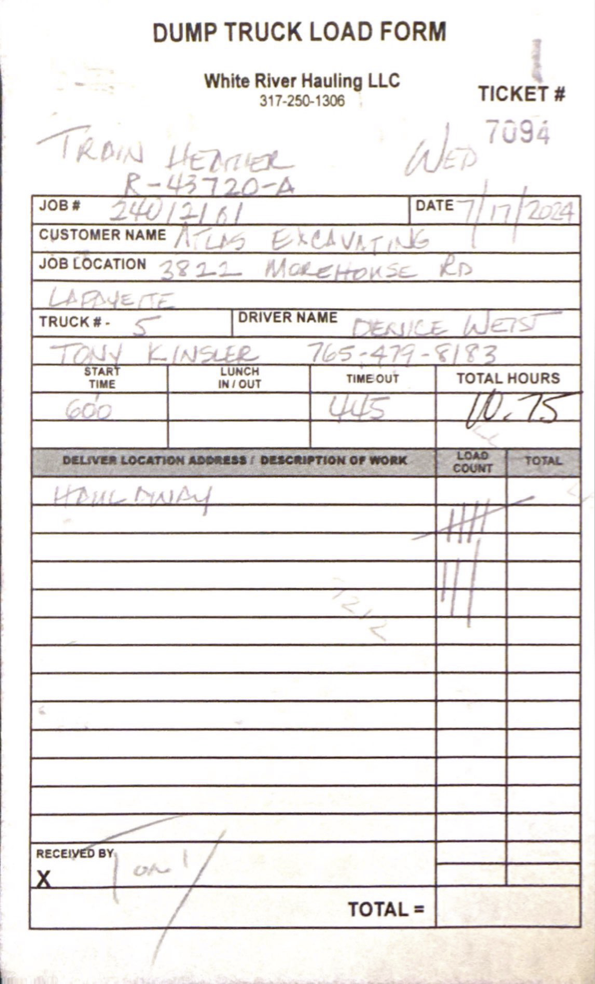 DUMP TRUCK LOAD FORM
White River Hauling LLC
317-250-1306
TICKET #
7094
TRAIN HEATHER
WED
R-43720-A
JOB # 240 DATE 7/17/2024
CUSTOMER NAME ATLAS EXCAVATING
JOB LOCATION 3822 MOREHOUSE RD
LAFAYETTE
TRUCK # - 5 DRIVER NAME WEIST
TONY KINSLER 765-479-8183
START TIME LUNCH IN / OUT TIME OUT TOTAL HOURS
600 445 10.75
DELIVER LOCATION ADDRESS / DESCRIPTION OF WORK LOAD COUNT TOTAL
HAUL AWAY
RECEIVED BY
X
TOTAL =